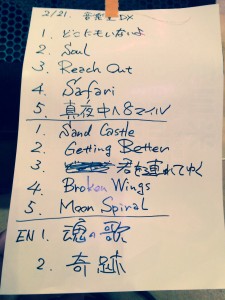 2/21. 音楽室DX
1. どこにもいないよ
2. Soul
3. Reach Out
4. Safari
5. 真夜中へ8マイル
1. Sand Castle
2. Getting Better
3. 君を連れてゆく
4. Broken Wings
5. Moon Spiral
EN 1. 魂の歌
2. 奇跡